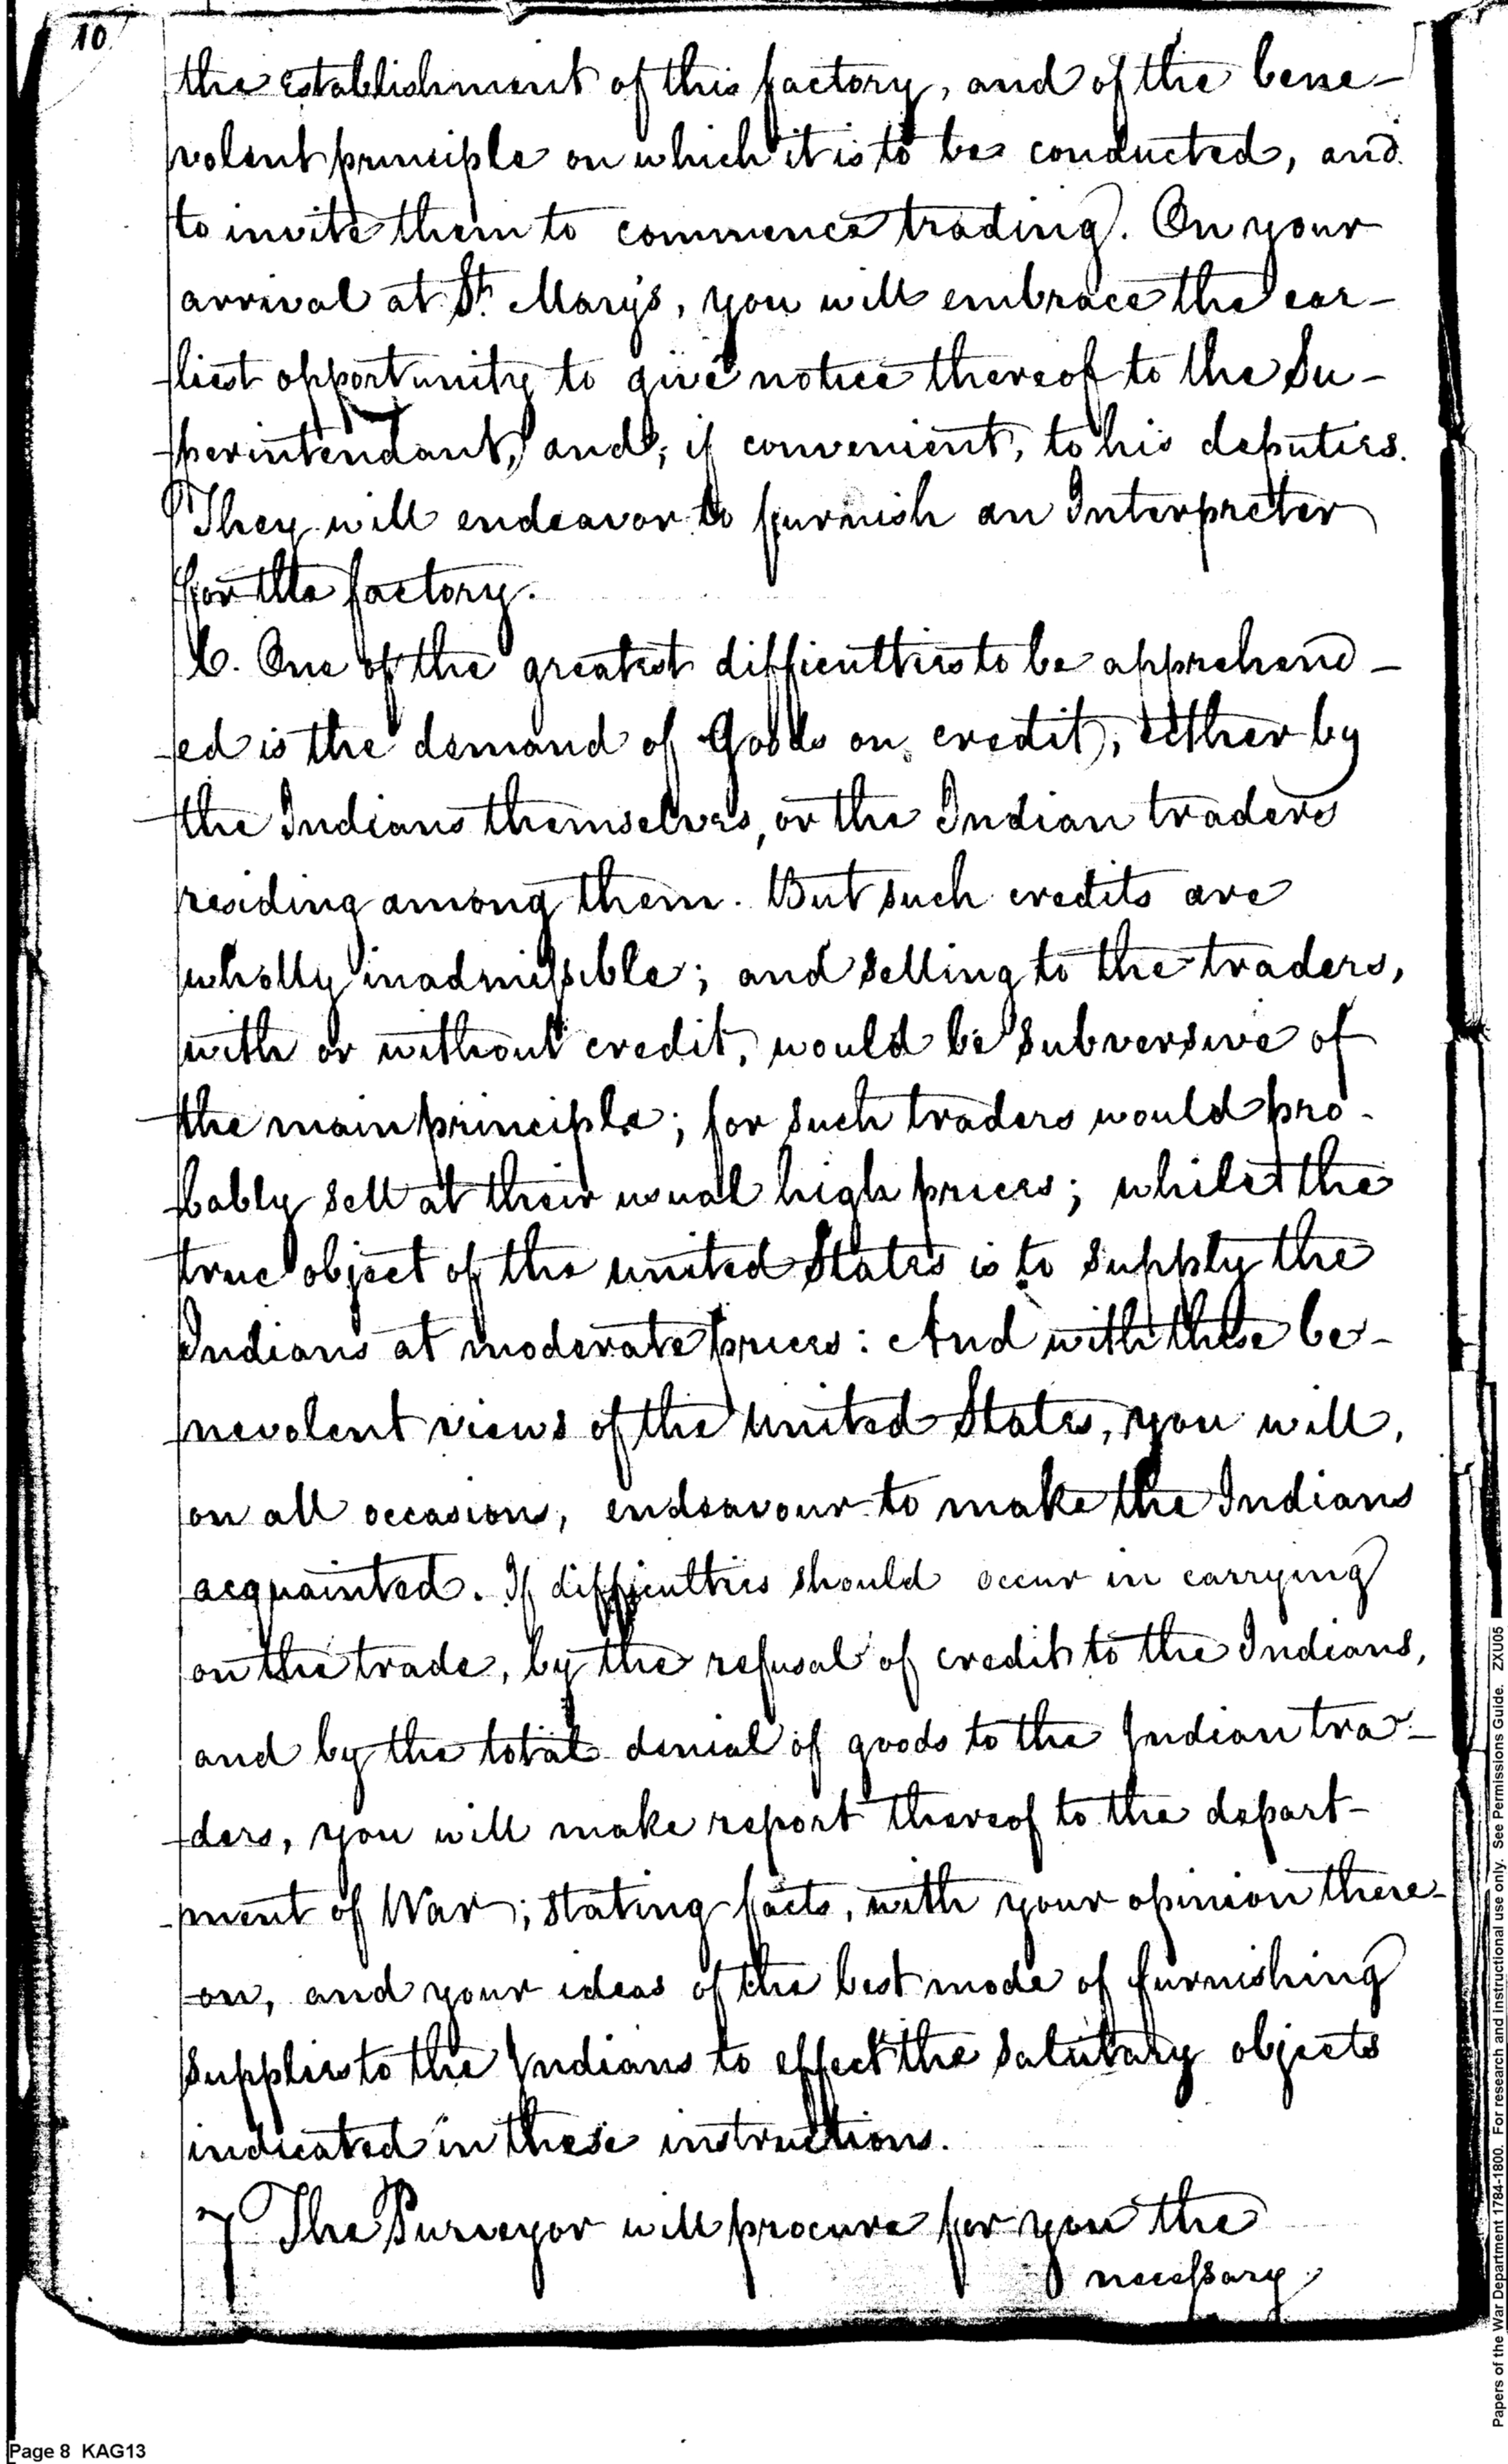 10.
the establishment of this factory, and of the bene-
volent principle on which it is to be conducted, and
to invite them to commence trading. On your
arrival at St. Mary's, you will embrace the ear-
liest opportunity to give notice thereof to the Su-
perintendant, and, if convenient, to his deputies.
They will endeavor to furnish an Interpreter
for the factory.
6. One of the greatest difficulties to be apprehend-
ed is the demand of Goods on credit, either by
the Indians themselves, or the Indian traders
residing among them. But such credits are
wholly inadmissible; and selling to the traders,
with or without credit, would be subversive of
the main principle; for such traders would pro-
bably sell at their usual high prices; whilst the
true object of the united States is to supply the
Indians at moderate prices: And with these be-
nevolent views of the united States, you will,
on all occasions, endeavour to make the Indians
acquainted. If difficulties should occur in carrying
on the trade, by the refusal of credit to the Indians,
and by the total denial of goods to the Indian tra-
ders, you will make report thereof to the depart-
ment of War; stating facts, with your opinion there-
on, and your ideas of the best mode of furnishing
supplies to the Indians to effect the salutary objects
indicated in these instructions.
7 The Purveyor will procure for you the
necessary
Papers of the War Department 1784-1800. For research and instructional use only. See Permissions Guide. ZXU05
Page 8 KAG13